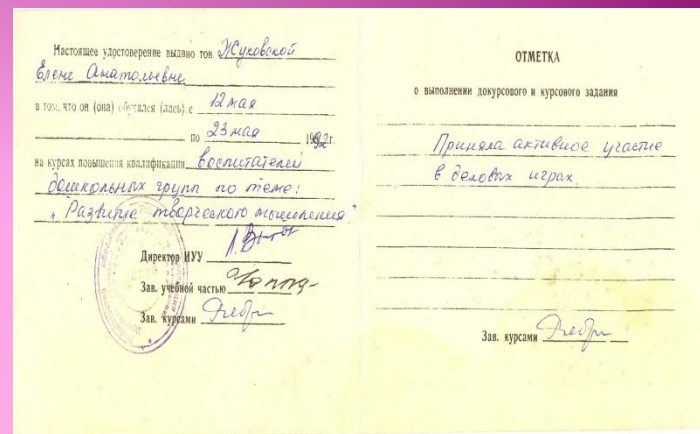 Настоящее удостоверение выдано тов. Жуковской
Елене Анатольевне
в том, что он (она) обучался (лась) с 12 мая
по 23 мая 1992 г.
на курсах повышения квалификации воспитателей
дошкольных групп по теме:
„Развитие творческого мышления"
Директор ИУУ
Зав. учебной частью
Зав. курсами
ОТМЕТКА
о выполнении докурсового и курсового задания
Приняла активное участие
в деловых играх.
Зав. курсами